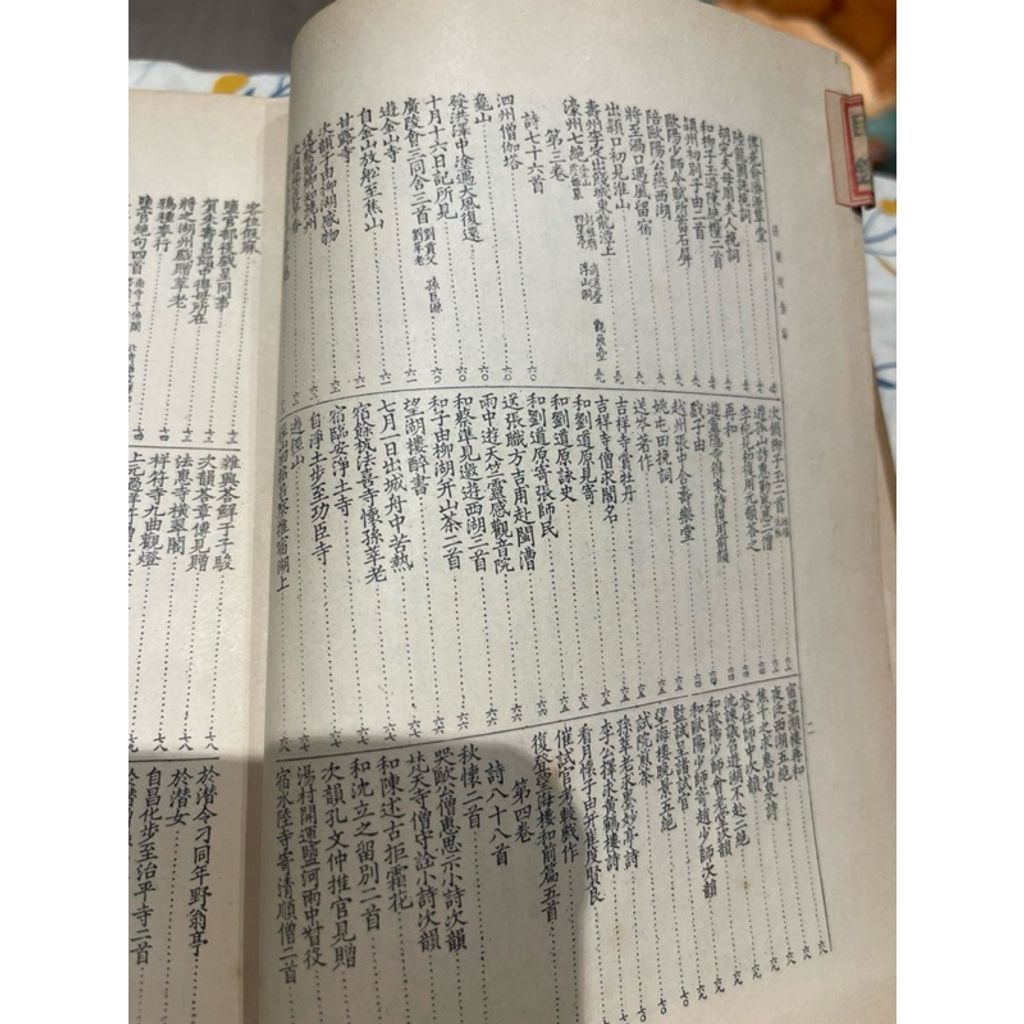 目錄
陸龍圖詵挽詞
胡完夫母周夫人挽詞
和柳子玉過陳絕糧二首
潁州初別子由二首
歐陽少師令賦所蓄石屏
陪歐陽公燕西湖
將至渦口遇風留宿
出潁口初見淮山
壽州李定出餞城東龍潭上
濠州七絕
第三卷
詩七十六首
泗州僧伽塔
龜山
發洪澤中途遇大風復還
十月十六日記所見
廣陵會三同舍三首 劉貢父 孫巨源 劉莘老
遊金山寺
自金山放船至焦山
甘露寺
次韻子由柳湖感物
遊孤山訪惠勤惠思二僧
李杞見和復用元韻答之
再和
遊靈隱寺得來詩復用前韻
戲子由
越州張中舍壽樂堂
姚屯田挽詞
送岑著作
吉祥寺賞牡丹
吉祥寺僧求閣名
和劉道原見寄
和劉道原詠史
和劉道原寄張師民
送張職方吉甫赴閩漕
雨中遊天竺靈感觀音院
和蔡準見邀遊西湖三首
和子由柳湖開山茶二首
望湖樓醉書
七月一日出城舟中苦熱
宿餘杭法喜寺懷孫莘老
宿臨安淨土寺
自淨土步至功臣寺
遊徑山
宿望湖樓再和
夜泛西湖五絕
焦千之求惠山泉詩
答任師中次韻
沈諫議召遊湖不赴二絕
和歐陽少師會老堂次韻
和歐陽少師寄趙少師次韻
監試呈諸試官
望海樓晚景五絕
試院煎茶
孫莘老求墨妙亭詩
李公擇求黃鶴樓詩
看月懷子由并崔度賢良
催試官考較戲作
復登望海樓和前篇五首
第四卷
詩八十八首
秋懷二首
哭歐公僧惠思示小詩次韻
梵天寺僧守詮小詩次韻
和陳述古拒霜花
和沈立之留別二首
次韻孔文仲推官見贈
湯村開運鹽河雨中督役
宿水陸寺寄清順僧二首
客位假寐
鹽官部役戲呈同事
賀朱壽昌郎中得母所在
將之湖州戲贈莘老
鴉種麥行
鹽官絕句四首
雜興答鮮于子駿
次韻答章傳見贈
法惠寺橫翠閣
祥符寺九曲觀燈
於潛令刁同年野翁亭
於潛女
自昌化步至治平寺二首